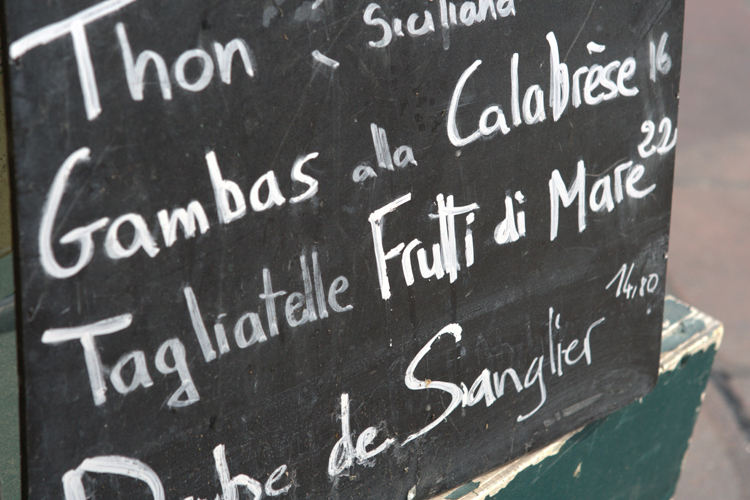 Thon Siciliana
Gambas alla Calabrèse 16
Tagliatelle Frutti di Mare 22
Daube de Sanglier 14,80